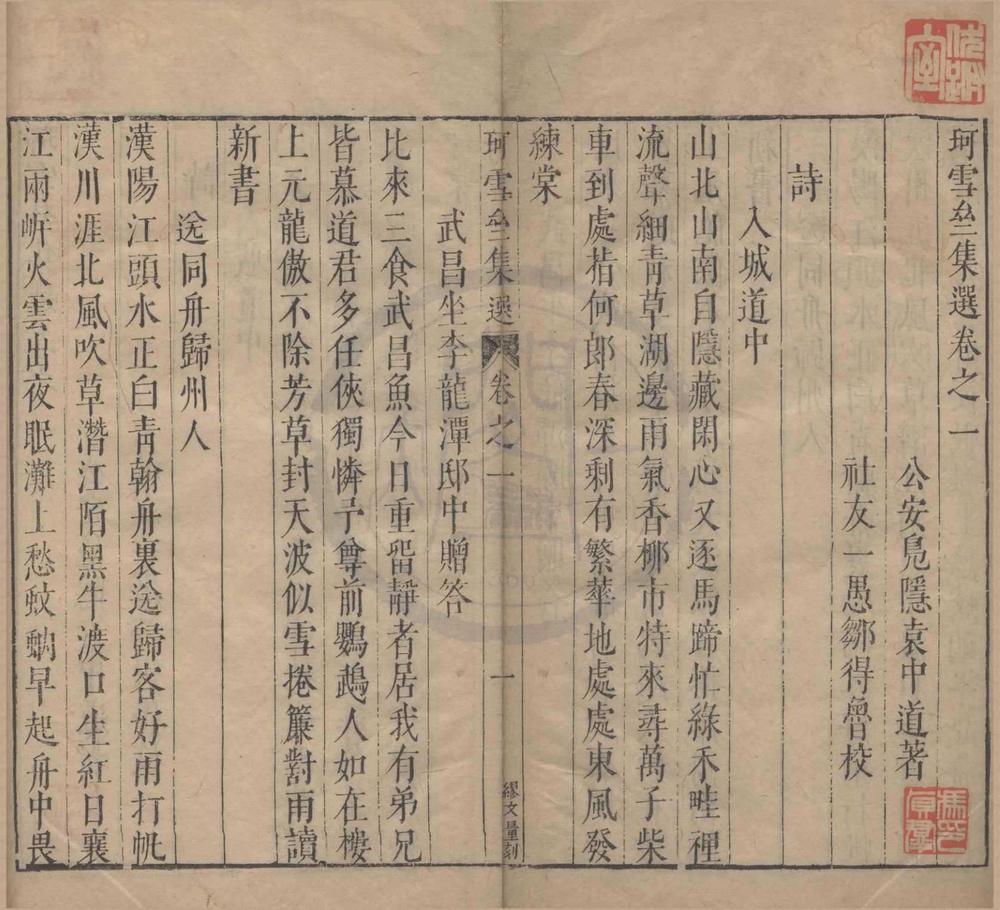 珂雪叁集選卷之一
公安鳧隱袁中道著
社友一愚鄒得魯校
詩
入城道中
山北山南自隱藏閑心又逐馬蹄忙綠禾畦裡
流聲細青草湖邊雨氣香柳市特來尋萬子柴
車到處拈何郎春深剩有繁華地處處東風發
練棠
珂雪叁集選
卷之一
一
繆文量刻
武昌坐李龍潭邸中贈答
比來三食武昌魚今日重畱靜者居我有弟兄
皆慕道君多任俠獨憐予尊前鸚鵡人如在樓
上元龍傲不除芳草封天波似雪捲簾對雨讀
新書
送同舟歸州人
漢陽江頭水正白青翰舟裏送歸客好雨打帆
漢川涯北風吹草潛江陌黑牛渡口生紅日襄
江兩岍火雲出夜眠灘上愁蚊蚋早起舟中畏